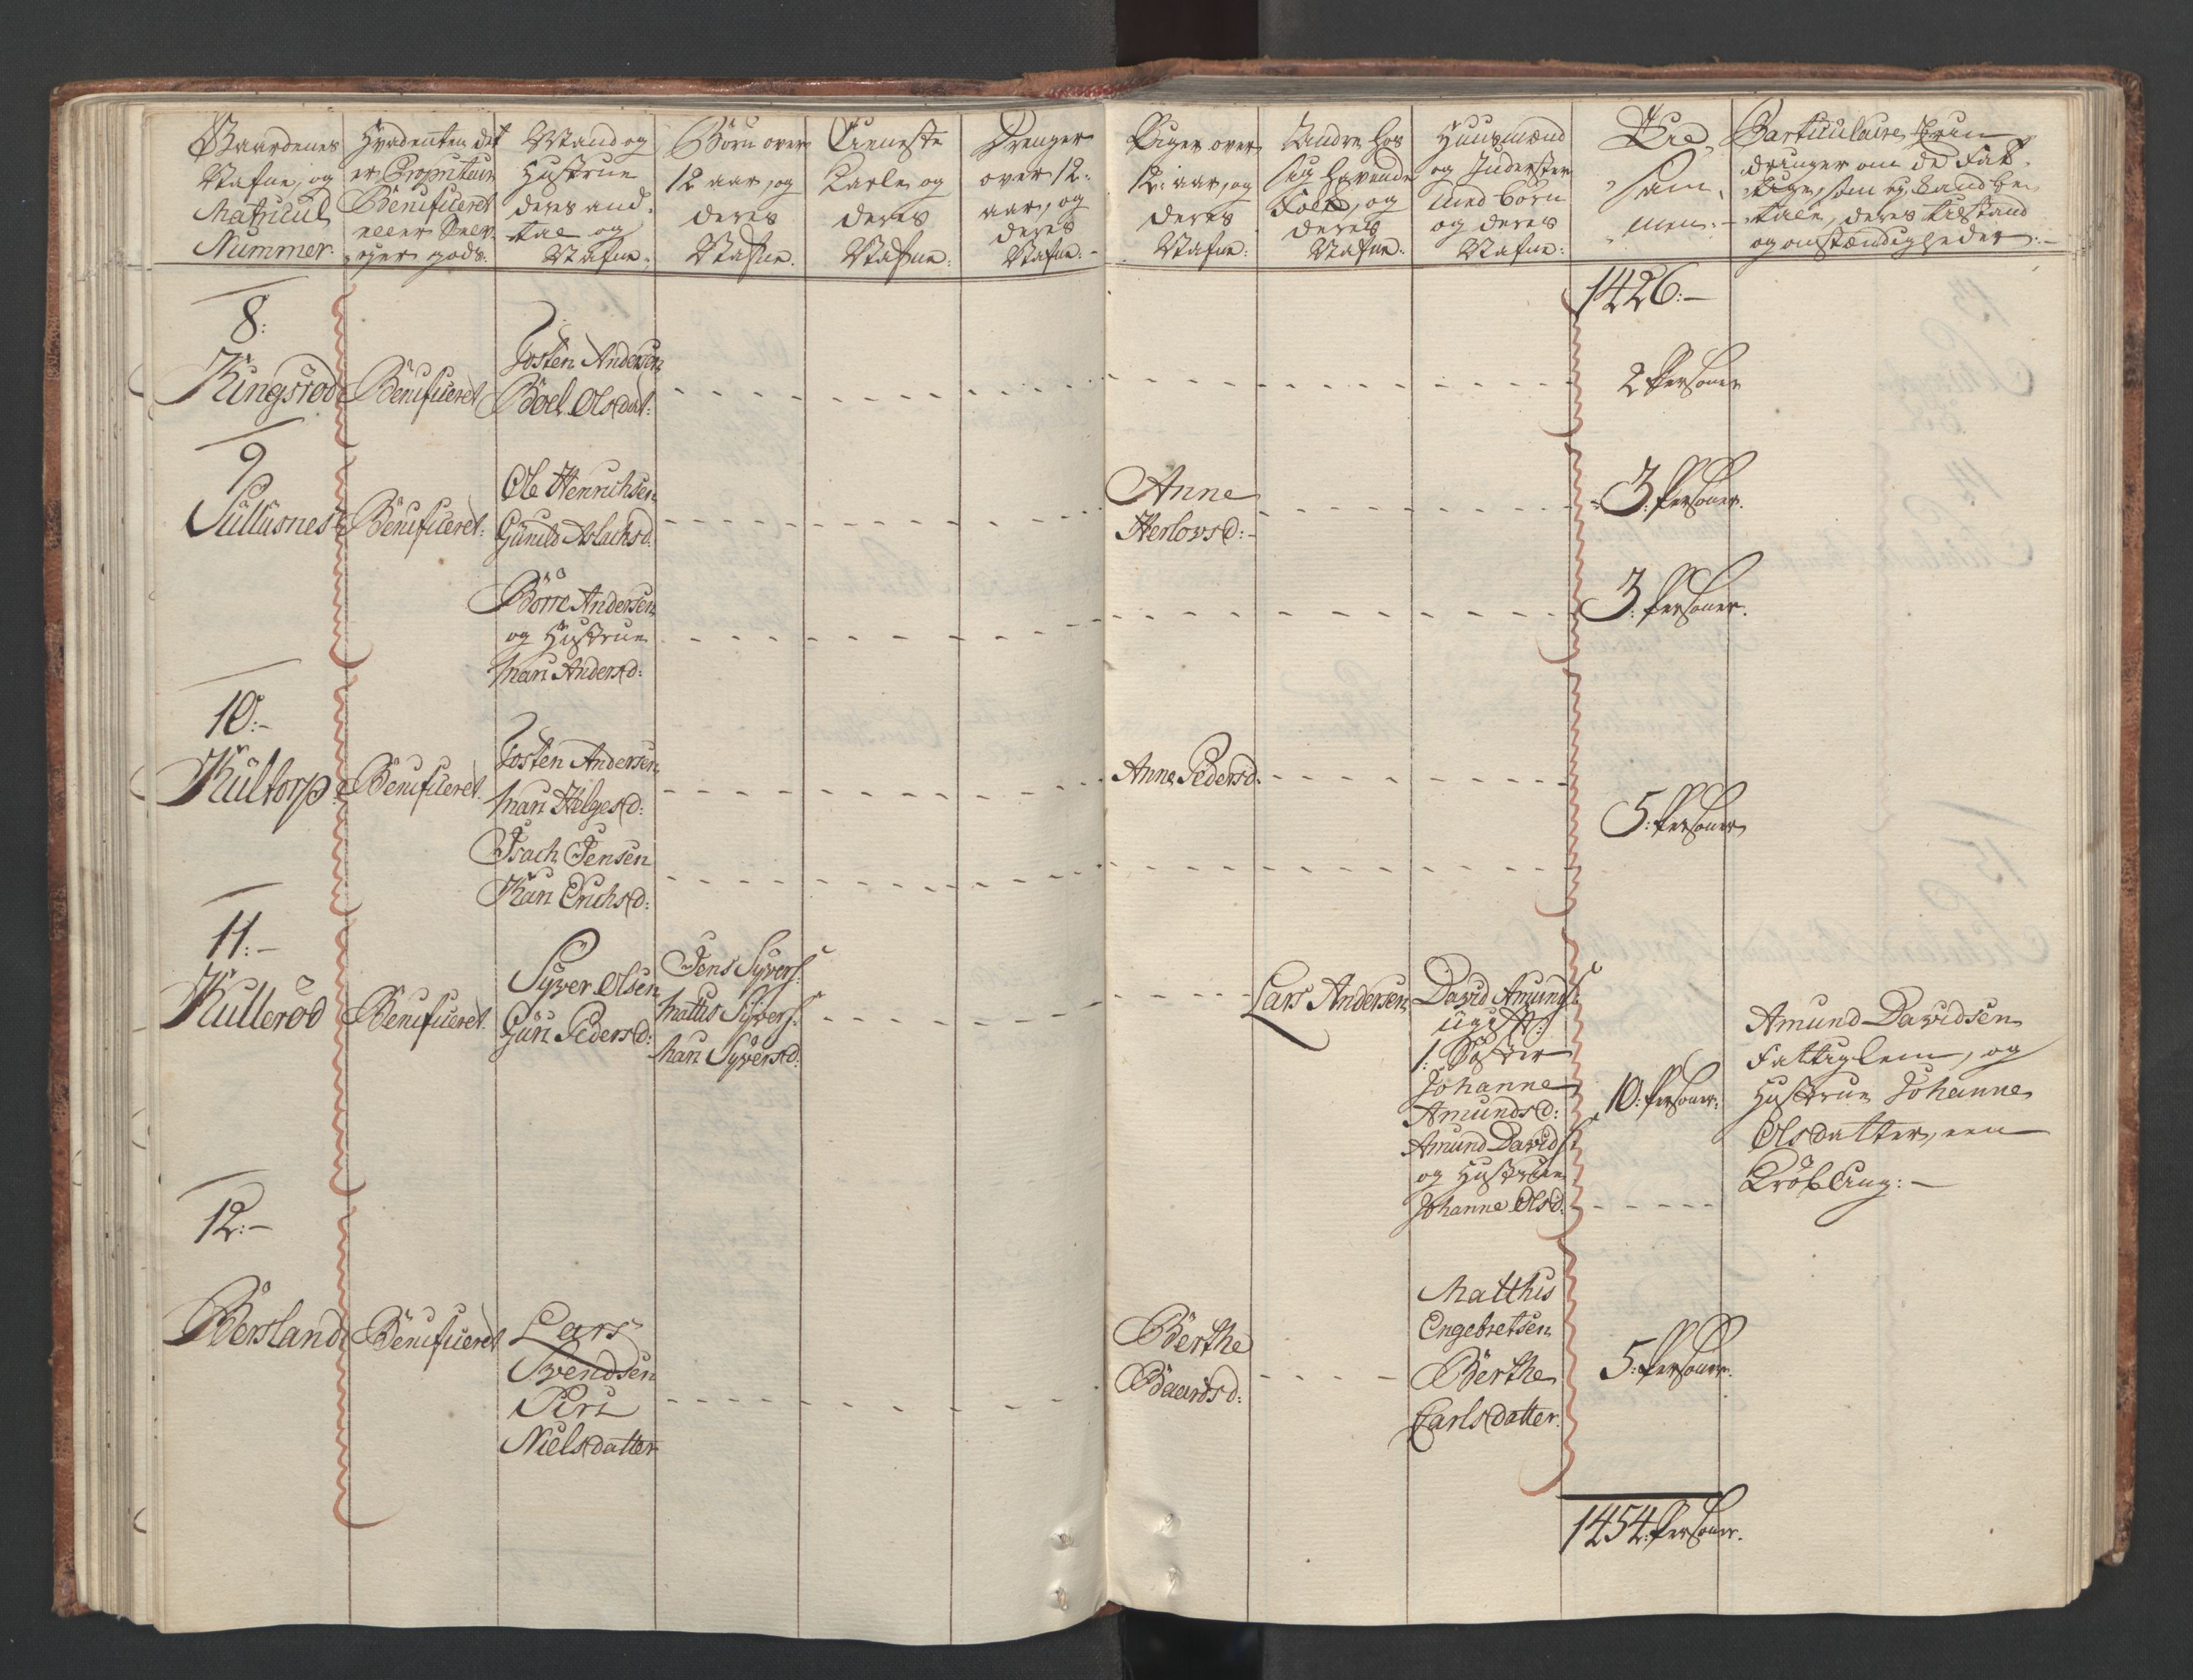 Gaardenes
Nafne, og
Matricul
Nummer.
Hvadenten det
er Proprietair
Beneficeret
eller Selv-
ejer gods.
Mand og
Hustrue
deres and-
tal og
Nafne.
Børn over
12 aar, og
deres
Nafne.
Tieneste
Karle og
deres
Nafne.
Drenger
over 12:
aar, og
deres
Nafne:-
Piger over
12: aar, og
deres
Nafne:
Andre hos
sig havende
Folk, og
deres
Nafne.
Huusmænd
og Inderster
med børn
og deres
Nafne:
Til
sam-
men:-
Particulaire Erin-
dringer om de Fat-
tige, som ej kand be-
tale, deres tilstand
og omstændigheder:-
1426:-
8:
Ringsrød
Beneficeret
Tosten Andersen
Boel Olsdat:
2 Personer
9
Sullusnes
Beneficeret:
Ole Henrichsen
Gunild Aslachsd:
Anne
Herlovsd:-
3: Personer.
Börre Andersen
og Hustrue
Mari Andersd:
3: Personer.
10:-
Kultorp
Beneficeret.
Tosten Andersen
Mari Helgesd:
Isach Jensen
Kari Erichsd:
Anne Pedersd:
5: Personer
11:-
Kullerød
Beneficeret.
Syver Olsen
Guri Pedersd:
Jens Syvers:
Mattis Syvers:
Mari Syversd:
Lars Andersen
David Amunds:
ugift:
1: Søster
Johanne
Amundsd:
Amund Davids:
og Hustrue
Johanne Olsd:
10: Personer:
Amund Davidsen
Fattiglem, og
Hustrue Johanne
Olsdatter, een
Krøbling:-
12:-
Bersland
Beneficeret
Lars
Svendsen
Siri
Nielsdatter
Berthe
Baardsd:
Matthis
Engebretsen
Berthe
Carlsdatter.
5: Personer.
1454: Personer.